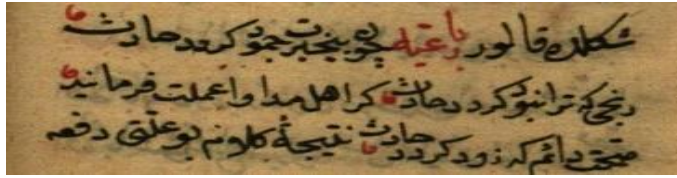 شکلده قالور رباعیه چون بنجیرت جمود کردد حادث
رنجی که ترا نبود کردد حادث کر اهل مداوا عملت فرمایند
صحتی دائم که زود کردد حادث نتیجۀ کلونه بو علتی دفعه